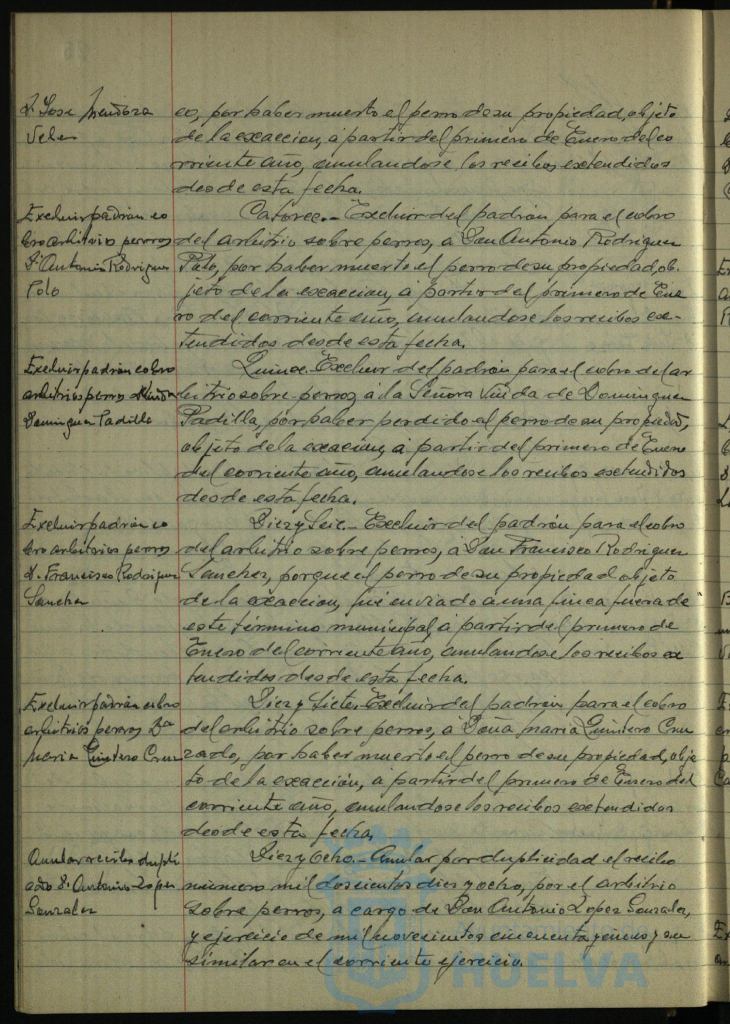 D. Jose Mendoza
Velez
co, por haber muerto el perro de su propiedad, objeto
de la exaccion, a partir del primero de Enero del co
rriente año, anulandose los recibos extendidos
desde esta fecha.
Excluir padrón co
bro arbitrios perros
D. Antonio Rodriguez
Polo
Catorce.- Excluir del padrón para el cobro
del arbitrio sobre perros, a Don Antonio Rodriguez
Polo, por haber muerto el perro de su propiedad, ob-
jeto de la exaccion, a partir del primero de Ene
ro del corriente año, anulandose los recibos ex-
tendidos desde esta fecha.
Excluir padrón cobro
arbitrios perros Viuda
Dominguez Padilla
Quince.- Excluir del padrón para el cobro del ar
bitrio sobre perros, a la Señora Viuda de Dominguez
Padilla, por haber perdido el perro de su propiedad,
objeto de la exaccion, a partir del primero de Enero
del corriente año, anulandose los recibos extendidos
desde esta fecha.
Excluir padrón co
bro arbitrios perros
D. Francisco Rodriguez
Sanchez
Diez y Seis.- Excluir del padrón para el cobro
del arbitrio sobre perros, a Don Francisco Rodriguez
Sanchez, porque el perro de su propiedad objeto
de la exaccion, fué enviado a una finca fuera de
este término municipal, a partir del primero de
Enero del corriente año, anulandose los recibos ex
tendidos desde esta fecha.
Excluir padrón cobro
arbitrios perros Dª
Maria Quintero Cruz
Diez y Siete.- Excluir del padrón para el cobro
del arbitrio sobre perros, a Doña Maria Quintero Cru
zado, por haber muerto el perro de su propiedad, obje
to de la exacción, a partir del primero de Enero del
corriente año, anulandose los recibos extendidos
desde esta fecha.
Anular recibo dupli
cado D. Antonio Lopez
Gonzalez
Diez y Ocho.- Anular por duplicidad el recibo
número mil doscientos diez y ocho, por el arbitrio
sobre perros, a cargo de Don Antonio Lopez Gonzalez,
y ejercicio de mil novecientos cincuenta y cinco y su
similar en el corriente ejercicio.
HUELVA